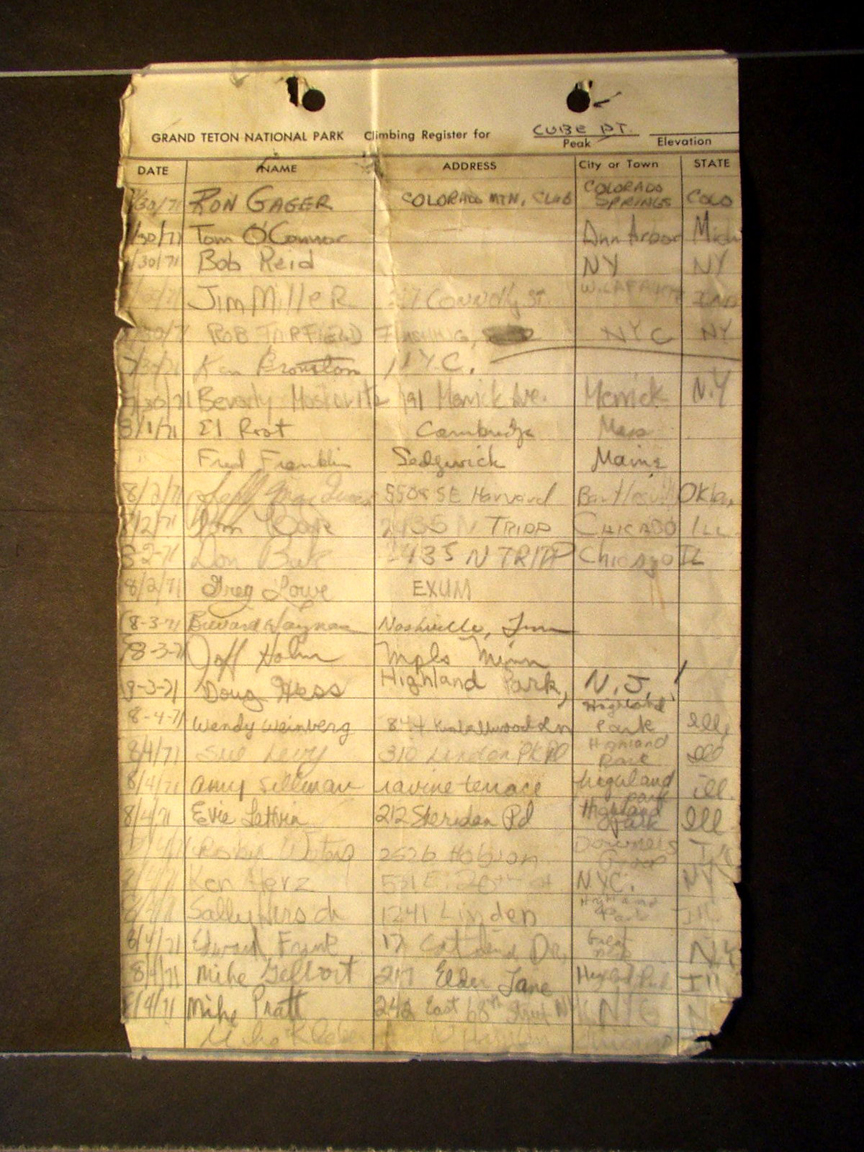 CUBE PT.
GRAND TETON NATIONAL PARK Climbing Register for
Peak Elevation
DATE NAME ADDRESS City or Town STATE
/30/71 RON GAGER COLORADO MTN. CLUB COLORADO SPRINGS COLO
/30/71 Tom O'Connor Ann Arbor Mich
/30/71 Bob Reid NY NY
Jim Miller Connolly St. W. LAFAYETTE IND
ROB NYC NY
7/30/71 Ken N.Y.C.
7/30/71 Beverly Moskovitz 91 Merrick Ave. Merrick N.Y
8/1/71 El Root Cambridge Mass
Fred Franklin Sedgwick Maine
8/2/71 5508 SE Harvard Bartlesville Okla.
8/2/71 2435 N TRIPP CHICAGO ILL.
8-2-71 Don 2435 N TRIPP Chicago IL
8/2/71 Greg Lowe EXUM
8-3-71 Nashville, Tenn
8-3-71 Jeff Holm Mpls Minn
8-3-71 Doug Hess Highland Park, N.J.
8-4-71 Wendy Weinberg 844 Ln Highland Park Ill,
8/4/71 Sue Levy 310 Linden Pk Pl Highland Park Ill
8/4/71 amy Sillman ravine terrace highland park ill.
8/4/71 Evie Lettvin 212 Sheridan Rd Highland Park Ill
2526 Hobson Downers Grove
Ken Herz 531 E. 20th st N.Y.C. NY
Sally Hirsch 1241 Linden Highland Park Ill
8/4/71 Edward Frank 17 Dr. Great Neck N.Y
8/4/71 Mike 217 Elder Lane Highland Park Ill
8/4/71 Mike Pratt 242 East 68th Street NYC